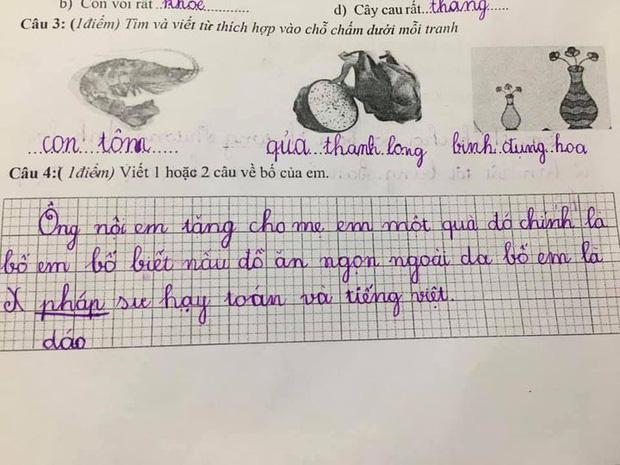 b) Con voi rất..khỏe............ d) Cây cau rất..thẳng......
Câu 3: (1điểm) Tìm và viết từ thích hợp vào chỗ chấm dưới mỗi tranh
...con tôm...... qủa thanh long bình đựng hoa
Câu 4:( 1điểm) Viết 1 hoặc 2 câu về bố của em.
Ông nội em tặng cho mẹ em một quà đó chính là
bố em bố biết nâu đồ ăn ngon ngoài da bố em là
X pháp sư hạy toán và tiếng việt.
dáo